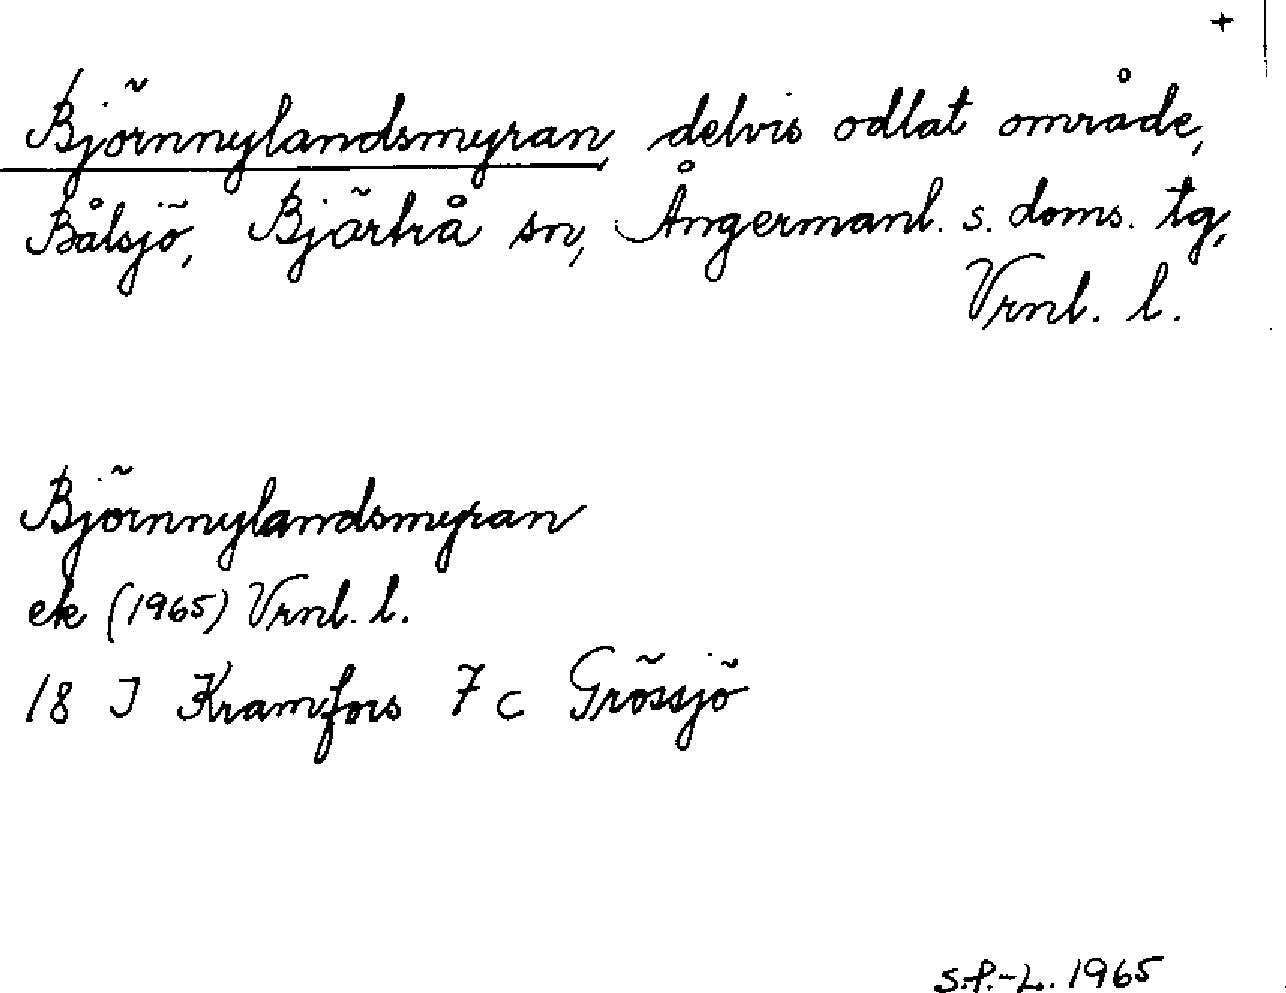 +
Björnnylandsmyran, delvis odlat område,
Bålsjö, Bjärtrå sn, Ångermanl. s. doms. tg,
Vrnl. l.
Björnnylandsmyran
ek (1965) Vrnl. l.
18 I Kramfors 7 c Grössjö
S.P.-L. 1965